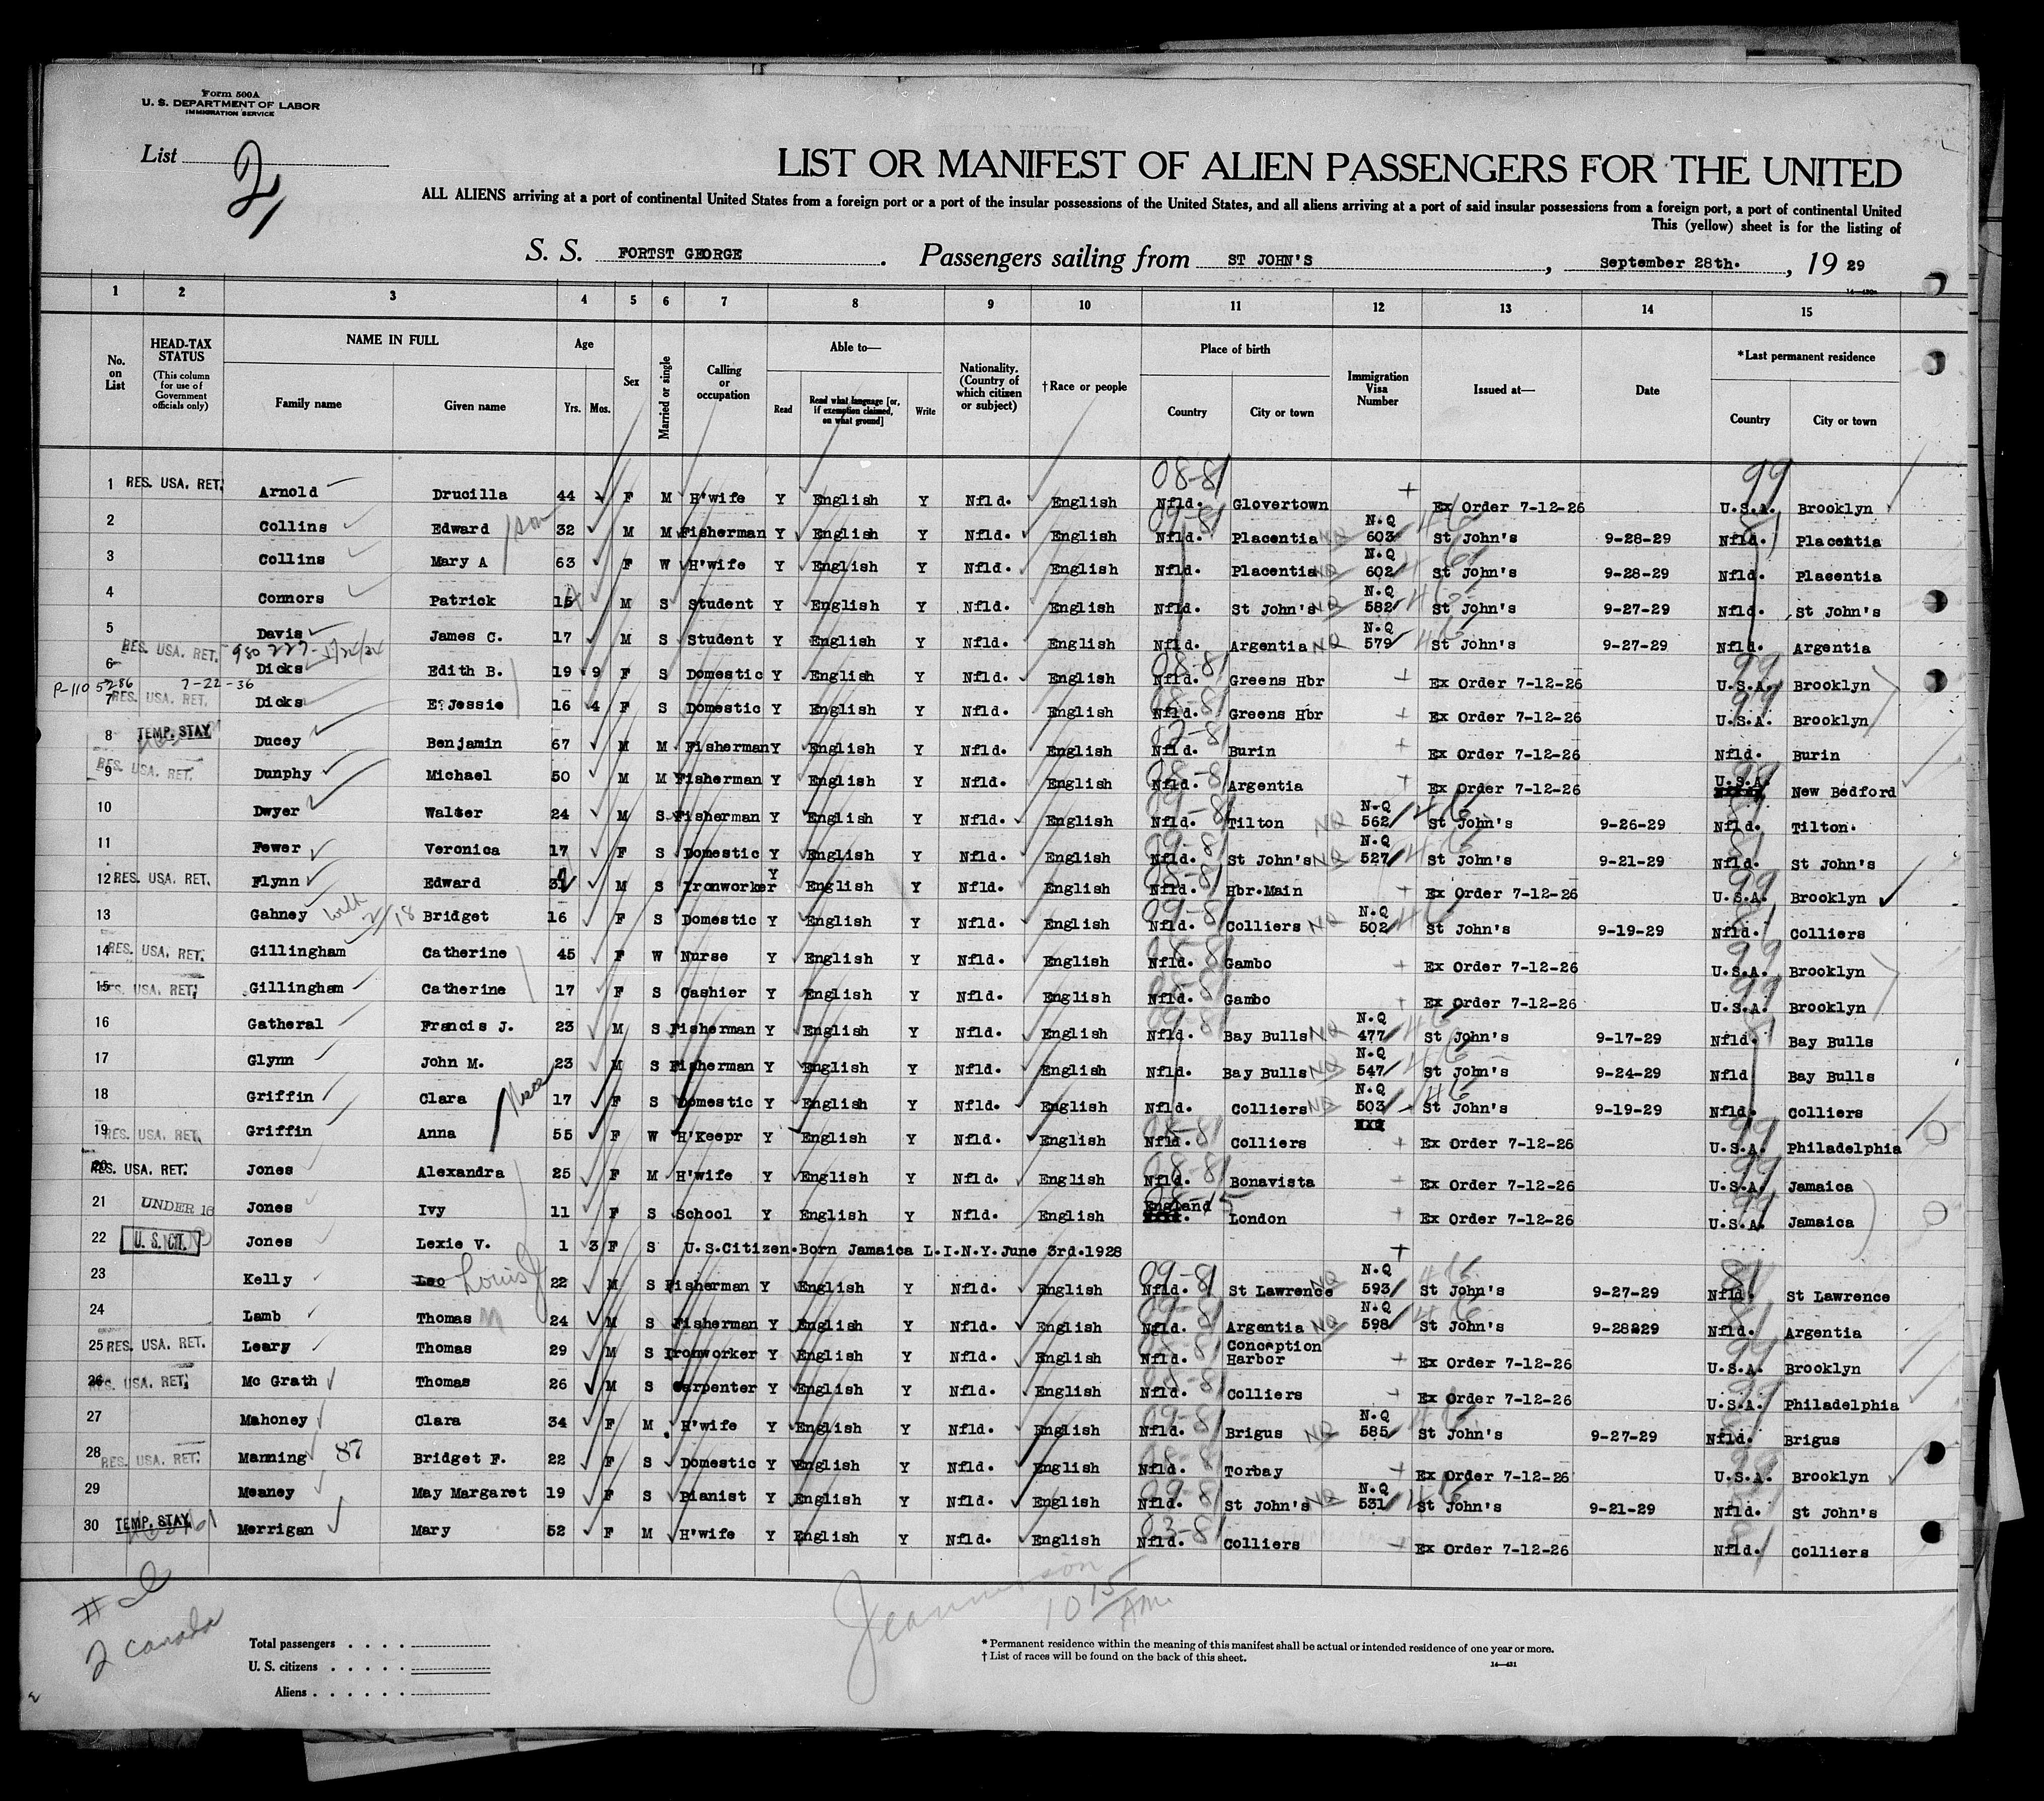 Form 500A
U. S. DEPARTMENT OF LABOR
IMMIGRATION SERVICE
List 2
LIST OR MANIFEST OF ALIEN PASSENGERS FOR THE UNITED
ALL ALIENS arriving at a port of continental United States from a foreign port or a port of the insular possessions of the United States, and all aliens arriving at a port of said insular possessions from a foreign port, a port of continental United
This (yellow) sheet is for the listing of
S. S. FORTST GEORGE. Passengers sailing from ST JOHN'S, September 28th., 19 29
1 2 3 4 5 6 7 8 9 10 11 12 13 14 15
No. on List
HEAD-TAX STATUS (This column for use of Government officials only)
NAME IN FULL
Family name Given name
Age
Yrs. Mos.
Sex
Married or single
Calling or occupation
Able to—
Read Read what language [or, if exemption claimed, on what ground] Write
Nationality. (Country of which citizen or subject)
†Race or people
Place of birth
Country City or town
Immigration Visa Number
Issued at—
Date
*Last permanent residence
Country City or town
1 RES. USA. RET. Arnold Drucilla 44 F M H'wife Y English Y Nfld. English 08-81 Nfld. Glovertown + Ex Order 7-12-26 99 U.S.A. Brooklyn
2 Collins Edward son 32 M M Fisherman Y English Y Nfld. English 09-81 Nfld. Placentia NQ N.Q 603 46 St John's 9-28-29 81 Nfld. Placentia
3 Collins Mary A 63 F W H'wife Y English Y Nfld. English Nfld. Placentia NQ N.Q 602 46 St John's 9-28-29 Nfld. Placentia
4 Connors Patrick 15 M S Student Y English Y Nfld. English Nfld. St John's NQ N.Q 582 46 St John's 9-27-29 Nfld. St John's
5 Davis James C. 17 M S Student Y English Y Nfld. English Nfld. Argentia NQ N.Q 579 46 St John's 9-27-29 Nfld. Argentia
6 RES. USA. RET. Dicks Edith B. 19 9 F S Domestic Y English Y Nfld. English 08-81 Nfld. Greens Hbr + Ex Order 7-12-26 99 U.S.A. Brooklyn
7-22-36
7 RES. USA. RET. Dicks E. Jessie 16 4 F S Domestic Y English Y Nfld. English 08-81 Nfld. Greens Hbr + Ex Order 7-12-26 99 U.S.A. Brooklyn
8 TEMP. STAY Ducey Benjamin 67 M M Fisherman Y English Y Nfld. English 02-81 Nfld. Burin + Ex Order 7-12-26 Nfld. Burin
9 RES. USA. RET. Dunphy Michael 50 M M Fisherman Y English Y Nfld. English 08-81 Nfld. Argentia + Ex Order 7-12-26 U.S.A. New Bedford
10 Dwyer Walter 24 M S Fisherman Y English Y Nfld. English 09-81 Nfld. Tilton NQ N.Q 562 46 St John's 9-26-29 Nfld. Tilton.
11 Fewer Veronica 17 F S Domestic Y English Y Nfld. English 09-81 Nfld. St John's NQ N.Q 527 46 St John's 9-21-29 81 Nfld. St John's
12 RES. USA. RET. Flynn Edward M S Ironworker Y English Y Nfld. English 08-81 Nfld. Hbr.Main + Ex Order 7-12-26 99 U.S.A. Brooklyn
13 Gahney Bridget 16 F S Domestic Y English Y Nfld. English 09-81 Nfld. Colliers NQ N.Q 502 46 St John's 9-19-29 81 Nfld. Colliers
14 RES. USA. RET. Gillingham Catherine 45 F W Nurse Y English Y Nfld. English 08-81 Nfld. Gambo + Ex Order 7-12-26 99 U.S.A. Brooklyn
15 RES. USA. RET. Gillingham Catherine 17 F S Cashier Y English Y Nfld. English 08-81 Nfld. Gambo + Ex Order 7-12-26 99 U.S.A. Brooklyn
16 Gatheral Francis J. 23 M S Fisherman Y English Y Nfld. English 09-81 Nfld. Bay Bulls NQ N.Q 477 46 St John's 9-17-29 81 Nfld. Bay Bulls
17 Glynn John M. 23 M S Fisherman Y English Y Nfld. English Nfld. Bay Bulls NQ N.Q 547 46 St John's 9-24-29 Nfld Bay Bulls
18 Griffin Clara Niece 17 F S Domestic Y English Y Nfld. English Nfld. Colliers NQ N.Q 503 46 St John's 9-19-29 Nfld. Colliers
19 RES. USA. RET. Griffin Anna 55 F W H'Keepr Y English Y Nfld. English 08-81 Nfld. Colliers + Ex Order 7-12-26 99 U.S.A. Philadelphia
20 RES. USA. RET. Jones Alexandra 25 F M H'wife Y English Y Nfld. English 08-81 Nfld. Bonavista Ex Order 7-12-26 99 U.S.A. Jamaica
21 UNDER 16 Jones Ivy 11 F S School Y English Y Nfld. English 08-15 England London + Ex Order 7-12-26 99 U.S.A. Jamaica
22 U. S. CIT. Jones Lexie V. 1 3 F S U.S.Citizen.Born Jamaica L.I.N.Y.June 3rd.1928 +
23 Kelly Leo Louis J 22 M S Fisherman Y English Y Nfld. English 09-81 Nfld. St Lawrence NQ N.Q 593 46 St John's 9-27-29 81 Nfld. St Lawrence
24 Lamb Thomas M 24 M S Fisherman Y English Y Nfld. English 09-81 Nfld. Argentia NQ N.Q 598 46 St John's 9-28229 81 Nfld. Argentia
25 RES. USA. RET. Leary Thomas 29 M S Ironworker Y English Y Nfld. English 08-81 Nfld. Conception Harbor + Ex Order 7-12-26 99 U.S.A. Brooklyn
26 RES. USA. RET. Mc Grath Thomas 26 M S Carpenter Y English Y Nfld. English 08-81 Nfld. Colliers Ex Order 7-12-26 99 U.S.A. Philadelphia
27 Mahoney Clara 34 F M H'wife Y English Y Nfld. English 09-81 Nfld. Brigus NQ N.Q 585 46 St John's 9-27-29 81 Nfld. Brigus
28 RES. USA. RET. Manning 87 Bridget F. 22 F S Domestic Y English Y Nfld. English 08-81 Nfld. Torbay + Ex Order 7-12-26 99 U.S.A. Brooklyn
29 Meaney May Margaret 19 F S Pianist Y English Y Nfld. English 09-81 Nfld. St John's NQ N.Q 531 46 St John's 9-21-29 81 Nfld. St John's
30 TEMP. STAY Merrigan Mary 52 F M H'wife Y English Y Nfld. English 03-81 Nfld. Colliers Ex Order 7-12-26 81 Nfld. Colliers
# 2
2 Canada
10 15 Am.
Total passengers . . . .
U. S. citizens . . . . .
Aliens . . . . . .
* Permanent residence within the meaning of this manifest shall be actual or intended residence of one year or more.
† List of races will be found on the back of this sheet.
14—431